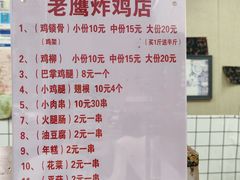 老鹰炸鸡店
1、（鸡锁骨）小份10元 中份15元 大份20元
（鸡架）（买1斤送半斤）
2、（鸡柳）小份10元 中份15元 大份20元
3、（巴掌鸡腿）8元一个
4、（小鸡腿）翅根 10元4个
5、（小肉串）10元30串
6、（火腿肠）2元一串
8、（油豆腐）2元一串
9、（年糕）2元一串
10、（花菜）2元一串
2元一串